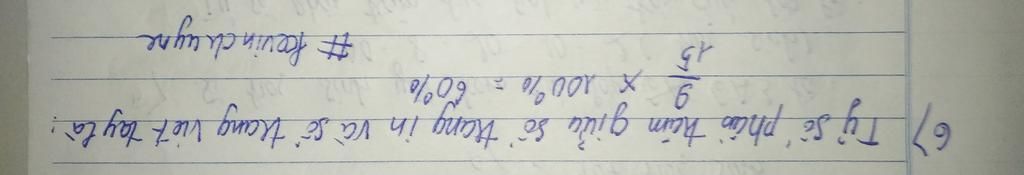 6) Tỷ số phần trăm giữa số trang in và số trang viết tay là:
9/15 x 100% = 60%
# kevinchuyne